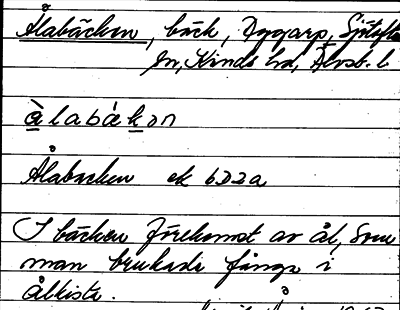 Ålabäcken, bäck, Dygarp, Sjötofta
sn, Kinds hd, Älvsb. l
àlabákən
Ålabacken ek 6D2a
I bäcken förekomst av ål, som
man brukade fånga i
ålkista.